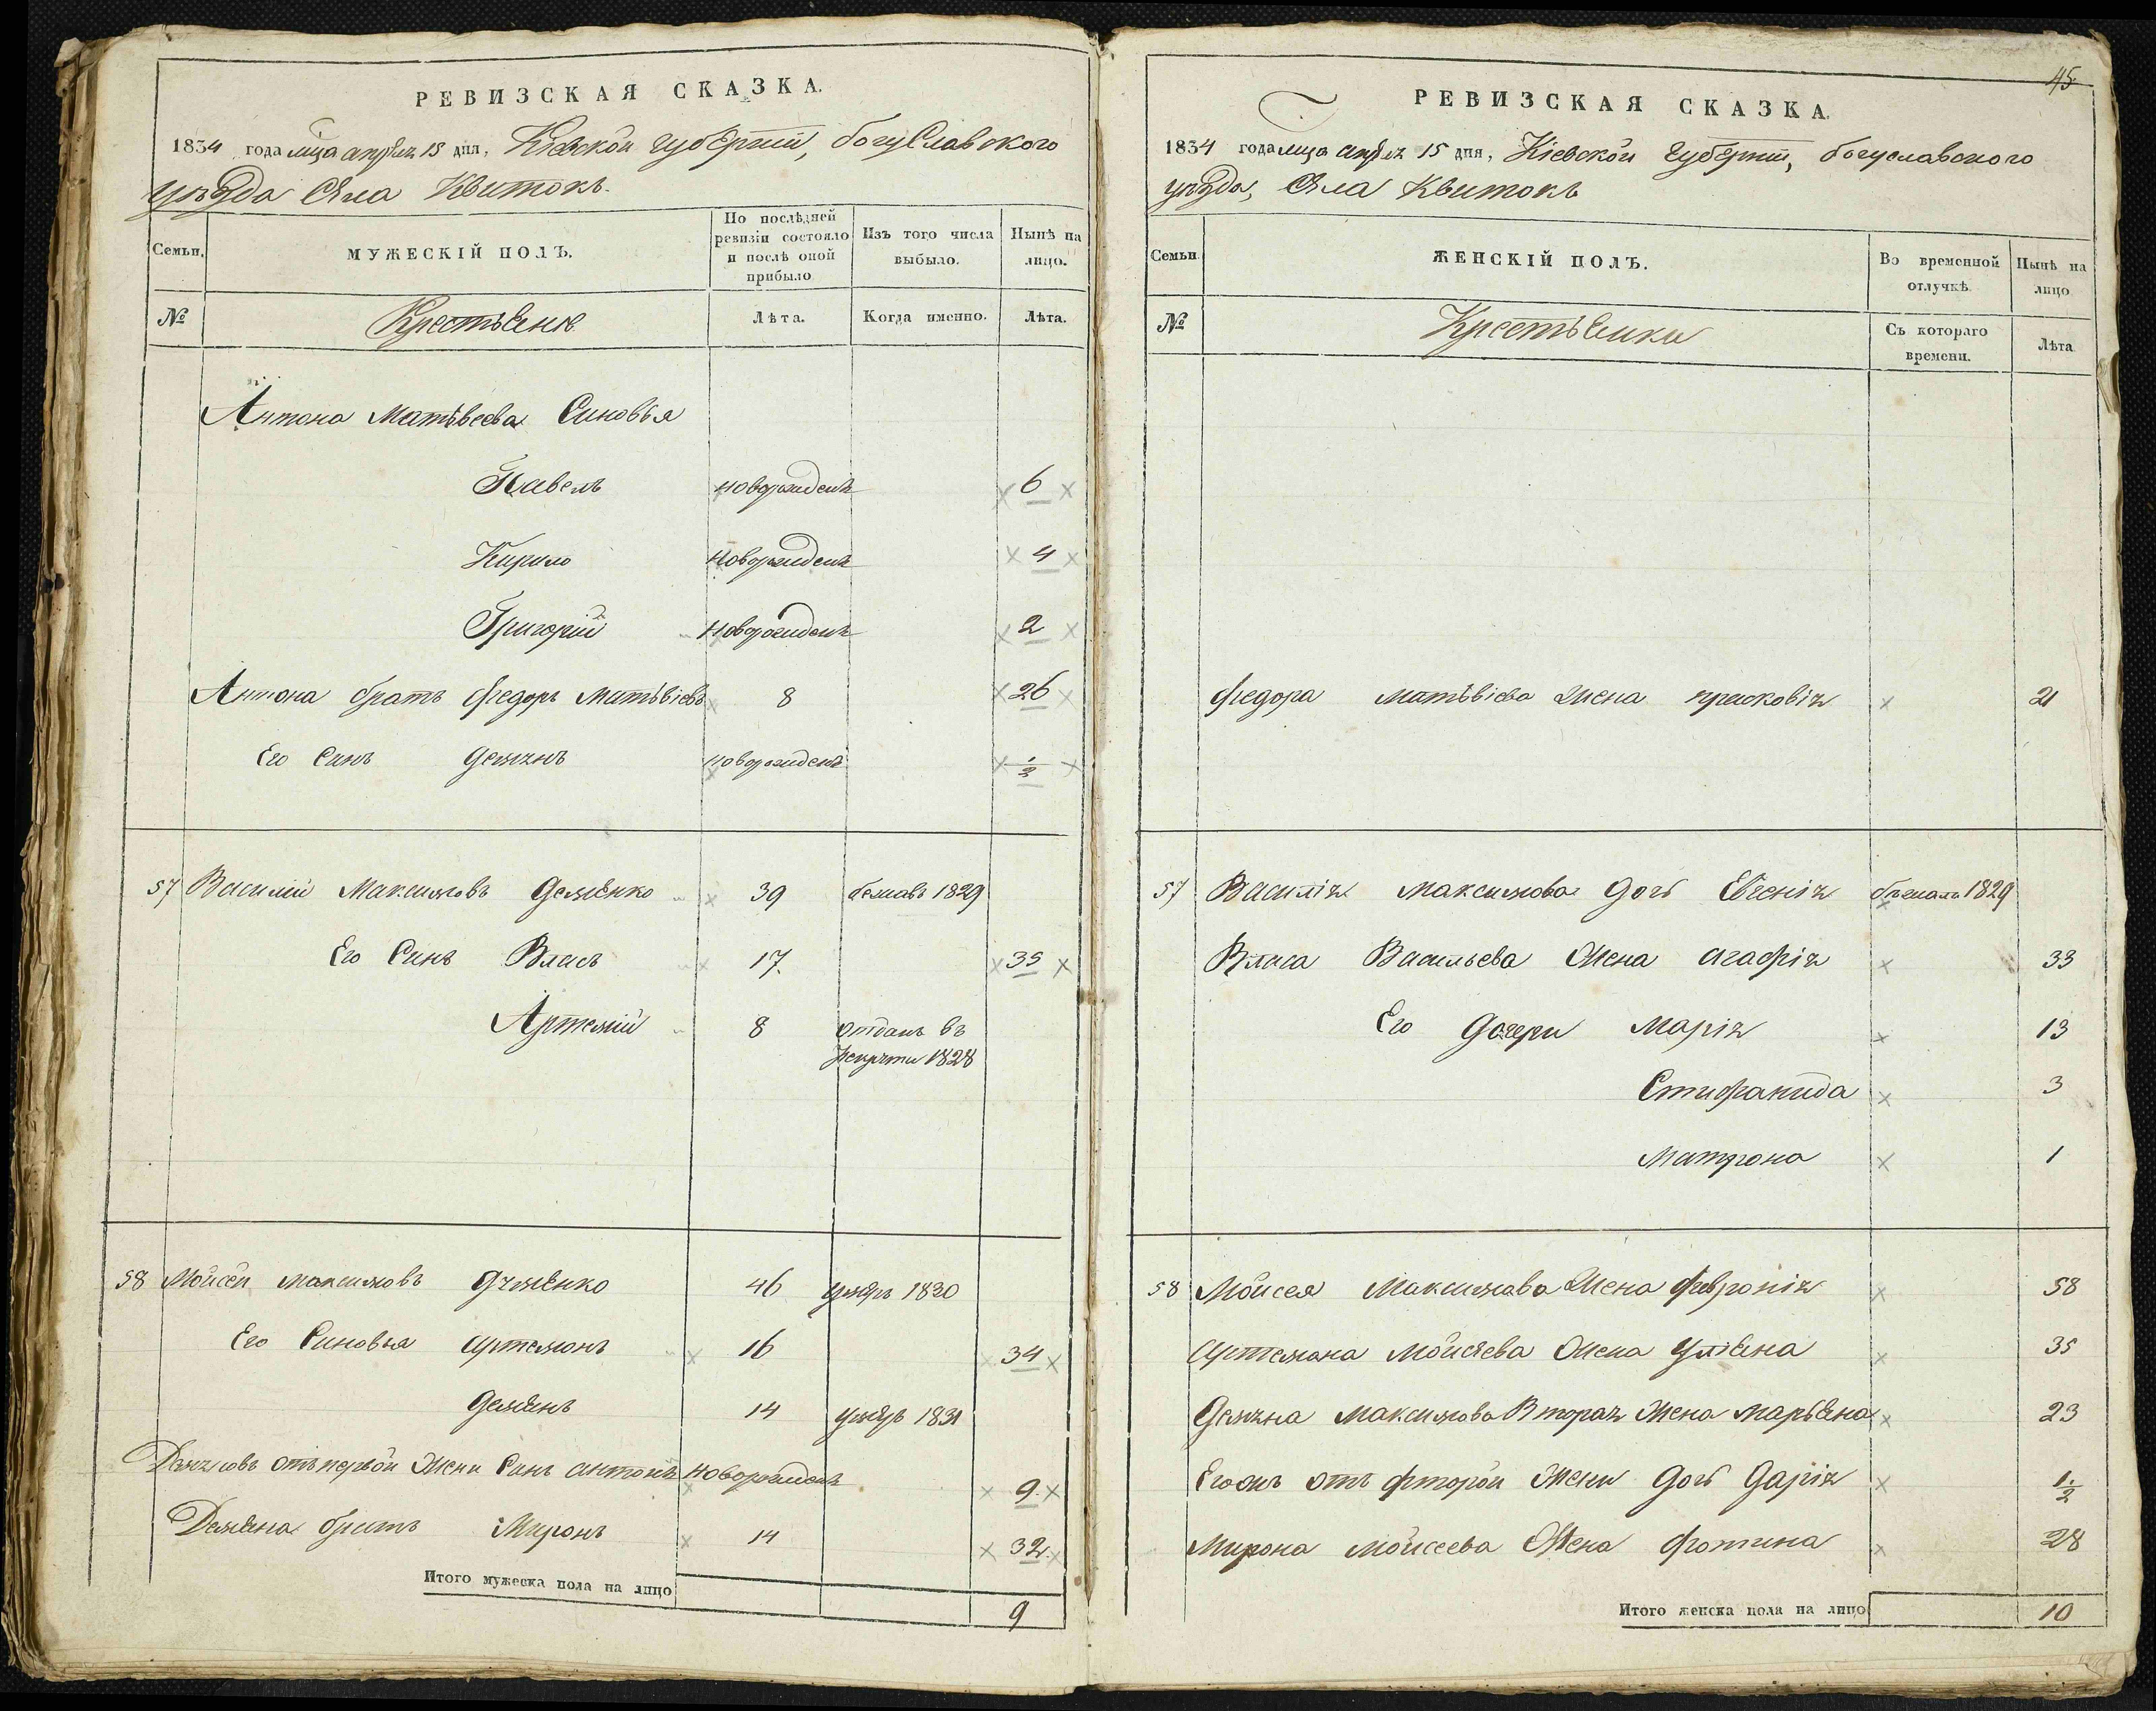 РЕВИЗСКАЯ СКАЗКА.
1834 года мца апреля 15 дня, Кіевской губерніи, богуславского
уезда села Квитокъ.
Семьи.
МУЖЕСКІЙ ПОЛЪ.
По послѣдней ревизіи состояло и послѣ оной прибыло
Изъ того числа выбыло.
Нынѣ на лицо.
№
Крестьяне
Лѣта.
Когда именно.
Лѣта.
Антона Матвѣева Синовья
Павелъ новорожденъ 6
Кирило новорожденъ 4
Григорій новорожденъ 2
Антона братъ федоръ Матвѣіевъ 8 26
Его Синъ Демянъ новорожденъ 1/2
57 Василій Максимовъ Деменко 39 бежавъ 1829
Его Синъ Власъ 17. 35
Артемій 8 отданъ въ
рекруты 1828
58 Мойсей максимовъ Дяменко 46 умеръ 1830
Его Синовья артемонъ 16 34
Демянъ 14 умеръ 1831
Демяновъ отъ первой жени Синъ антонъ новорожденъ 9.
Демяна братъ Миронъ 14 32.
Итого мужеска пола на лицо 9
45
РЕВИЗСКАЯ СКАЗКА.
1834 года мца апреля 15 дня, Кіевской губерніи, богуславского
уезда, села Квитокъ
Семьи.
ЖЕНСКІЙ ПОЛЪ.
Во временной отлучкѣ.
Нынѣ на лицо
№
Крестьянки
Съ котораго времени.
Лѣта
федора матвѣіева жена прасковія 21
57 Василія максимова дочь Евгенія бежала 1829
Власа Васильева жена агафія 33
Его дочери марія 13
Стифанида 3
матрона 1
58 Мойсея Максимова жена феронія 58
артемона мойсѣева жена уліяна 35
Демяна максимова вторая жена марьяна 23
Его отъ фторой жени дочь Дарія 1/2
мирона мойсеева жена фотина 28
Итого женска пола на лицо 10